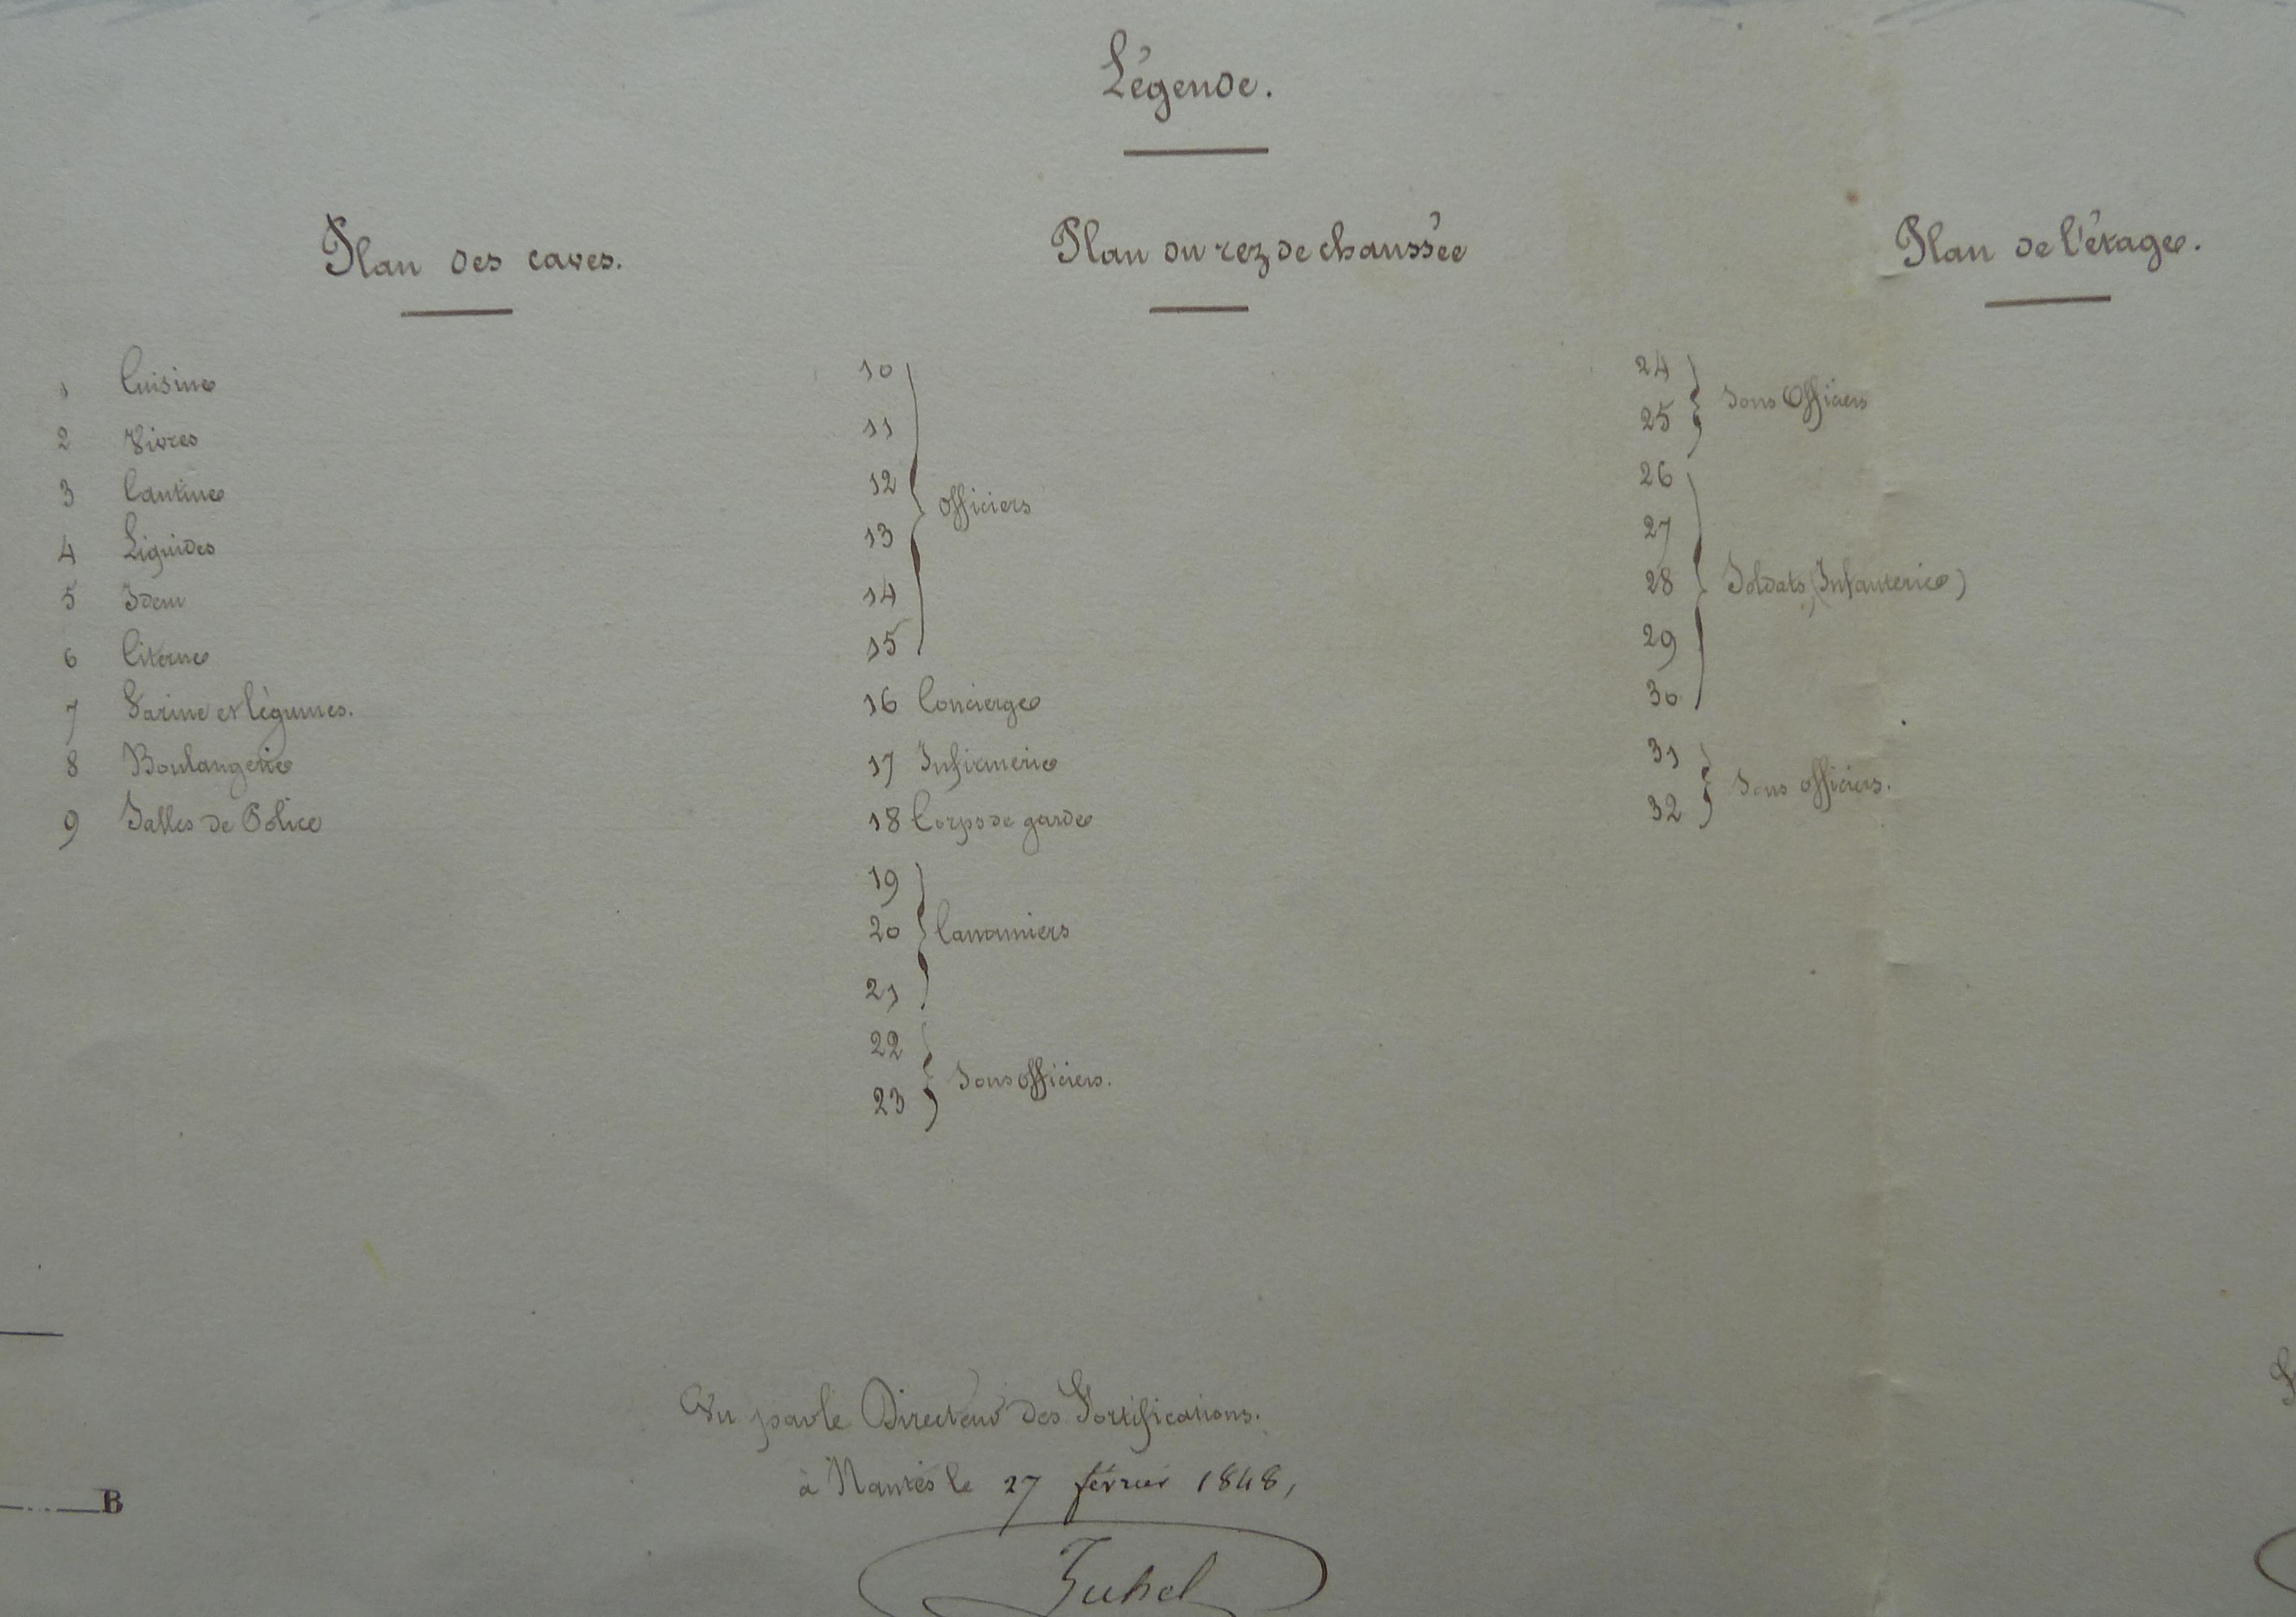 Légende.
Plan des caves.
1 Cuisine
2 Vivres
3 Cantine
4 Liquides
5 Idem
6 Citerne
7 Farine et légumes.
8 Boulangerie
9 Salles de Police
Plan du rez de chaussée
10
11
12
13
14
15
officiers
16 Concierge
17 Infirmerie
18 Corps de garde
19
20
21
Canonniers
22
23
Sous officiers.
Plan de l'étage.
24
25
Sous Officiers
26
27
28
29
30
Soldats, (Infanterie)
31
32
Sous officiers.
Vu par le Directeur des Fortifications.
à Nantes le 27 février 1848,
Juhel
B